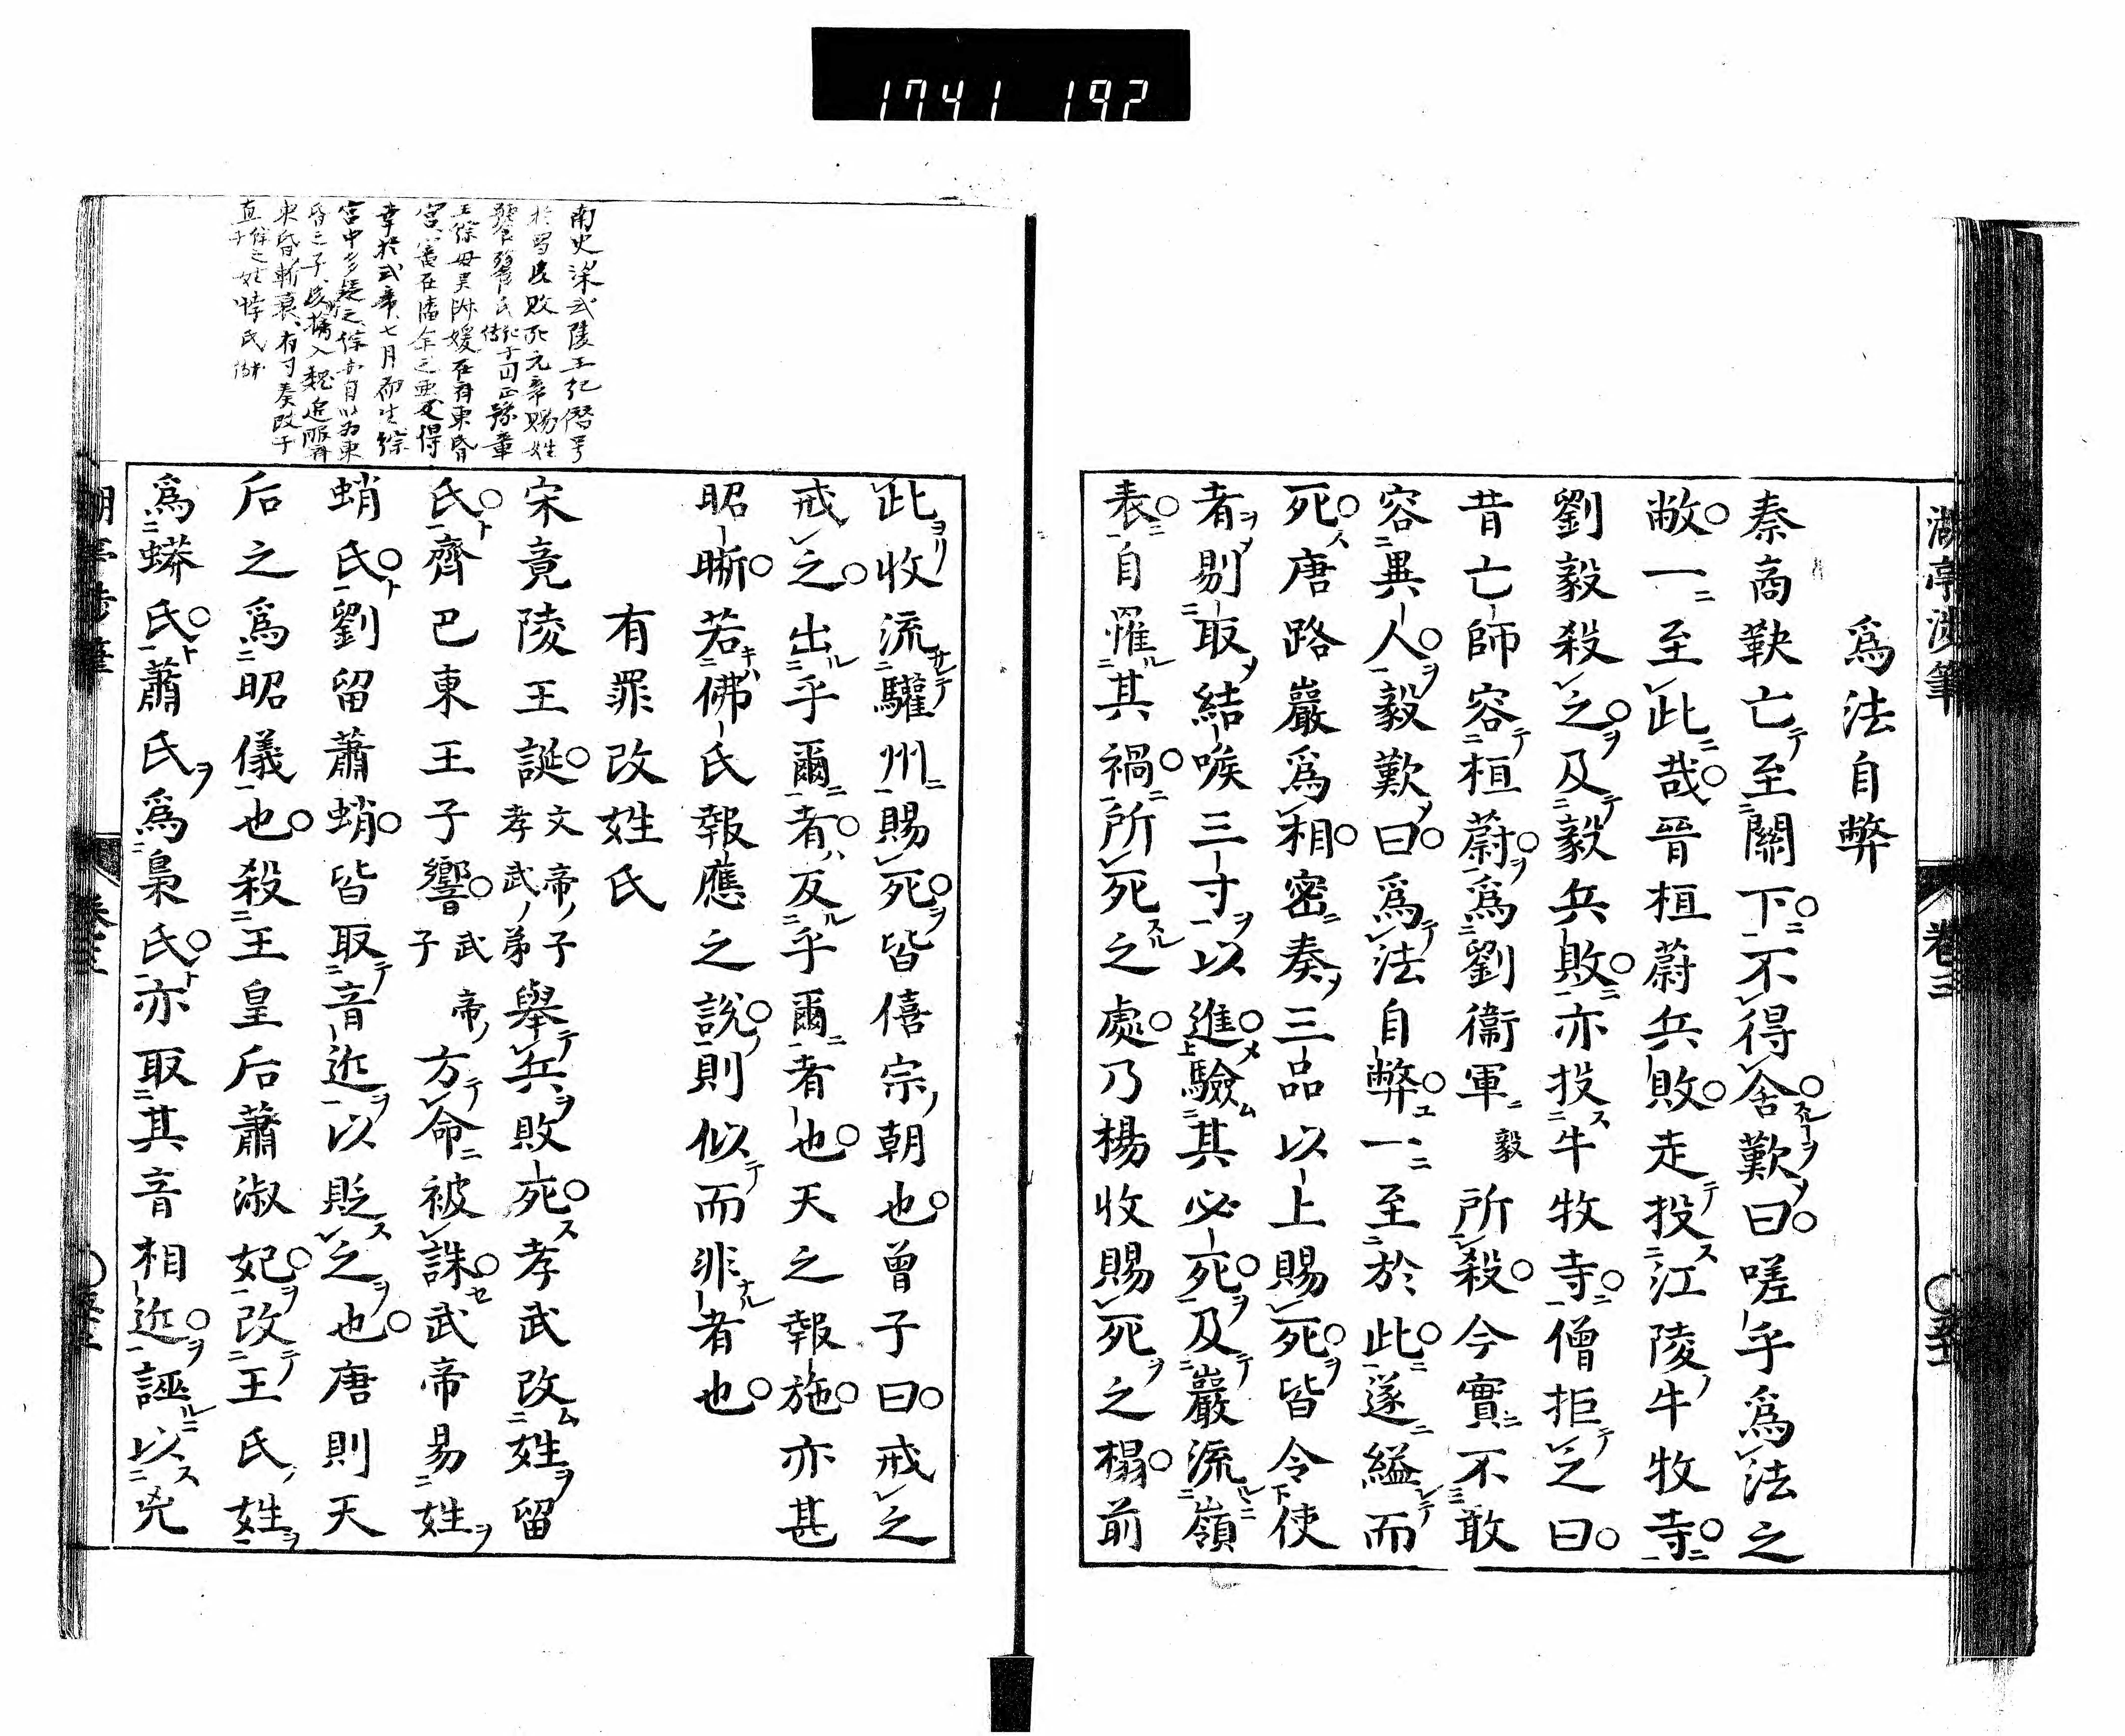 1741 192
湖亭渉筆
卷三
爲法自弊
秦商鞅亡至關下不得舍歎曰嗟乎爲法之
敝一至此哉晉桓蔚兵敗走投江陵牛牧寺
劉毅殺之及毅兵敗亦投牛牧寺僧拒之曰
昔亡師容桓蔚爲劉衞軍毅所殺今實不敢
容異人毅歎曰爲法自弊一至於此遂縊而
死唐路巖爲相密奏三品以上賜死皆令使
者剔取結喉三寸以進驗其必死及巖流嶺
表自罹其禍所死之處乃楊收賜死之榻前
此收流驩州賜死皆僖宗朝也曾子曰戒之
戒之出乎爾者反乎爾者也天之報施亦甚
昭晰若佛氏報應之說則似而非者也
有罪改姓氏
宋竟陵王誕文帝子孝武弟舉兵敗死孝武改姓留
氏齊巴東王子響武帝子方命被誅武帝易姓
蛸氏劉留蕭蛸皆取音近以貶之也唐則天
后之爲昭儀也殺王皇后蕭淑妃改王氏姓
爲蟒氏蕭氏爲梟氏亦取其音相近誣以兇
南史梁武陵王紀僭号
於蜀後敗死元帝賜姓
饕餮氏
豫章
王綜母吳淑媛在齊東昏
宮
得
幸於武帝七月而生綜
宮中多疑之綜亦自以爲東
昏之子後
入魏追服齊
東昏斬衰有司奏改子
直
姓悖氏